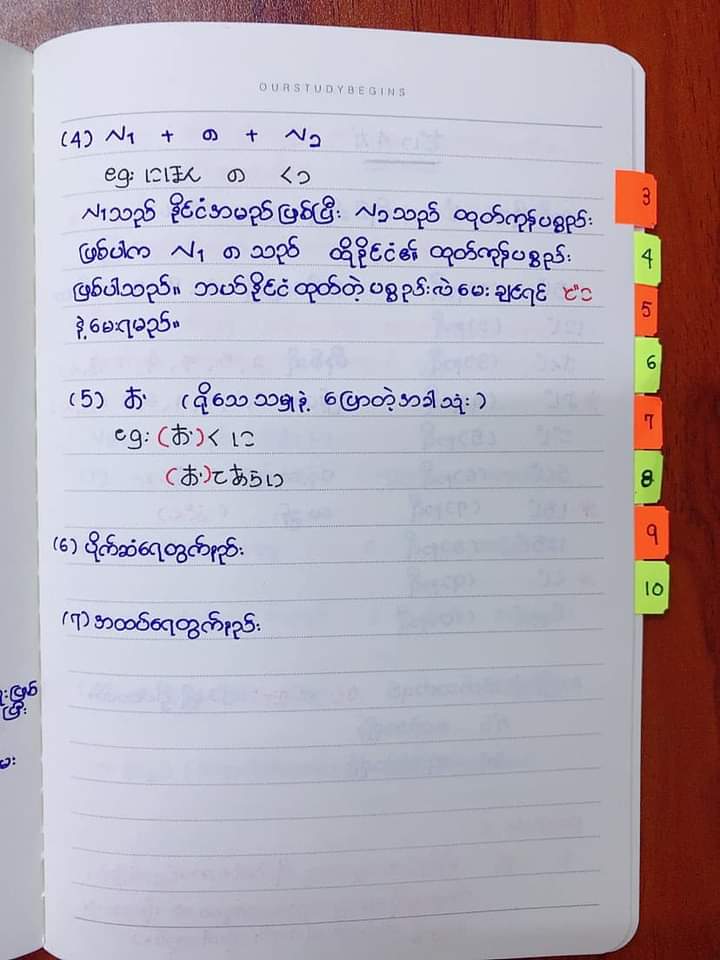 OURSTUDYBEGINS
(4) N1 + の + N2
eg: にほん の くつ
N1သည် နိုင်ငံအမည်ဖြစ်ပြီး N2သည် ထုတ်ကုန်ပစ္စည်း
ဖြစ်ပါက N1 の သည် ထိုနိုင်ငံ၏ ထုတ်ကုန်ပစ္စည်း
ဖြစ်ပါသည်။ ဘယ်နိုင်ငံထုတ်တဲ့ ပစ္စည်းလဲမေးချင်ရင် どこ
နဲ့မေးရမည်။
(5) お (ပိုသေသမှုနဲ့ ပြောတဲ့အခါသုံး)
eg: (お)くに
(お)てあらい
(6) ပိုက်ဆံရေတွက်နည်း
(7) အထပ်ရေတွက်နည်း
3
4
5
6
7
8
9
10